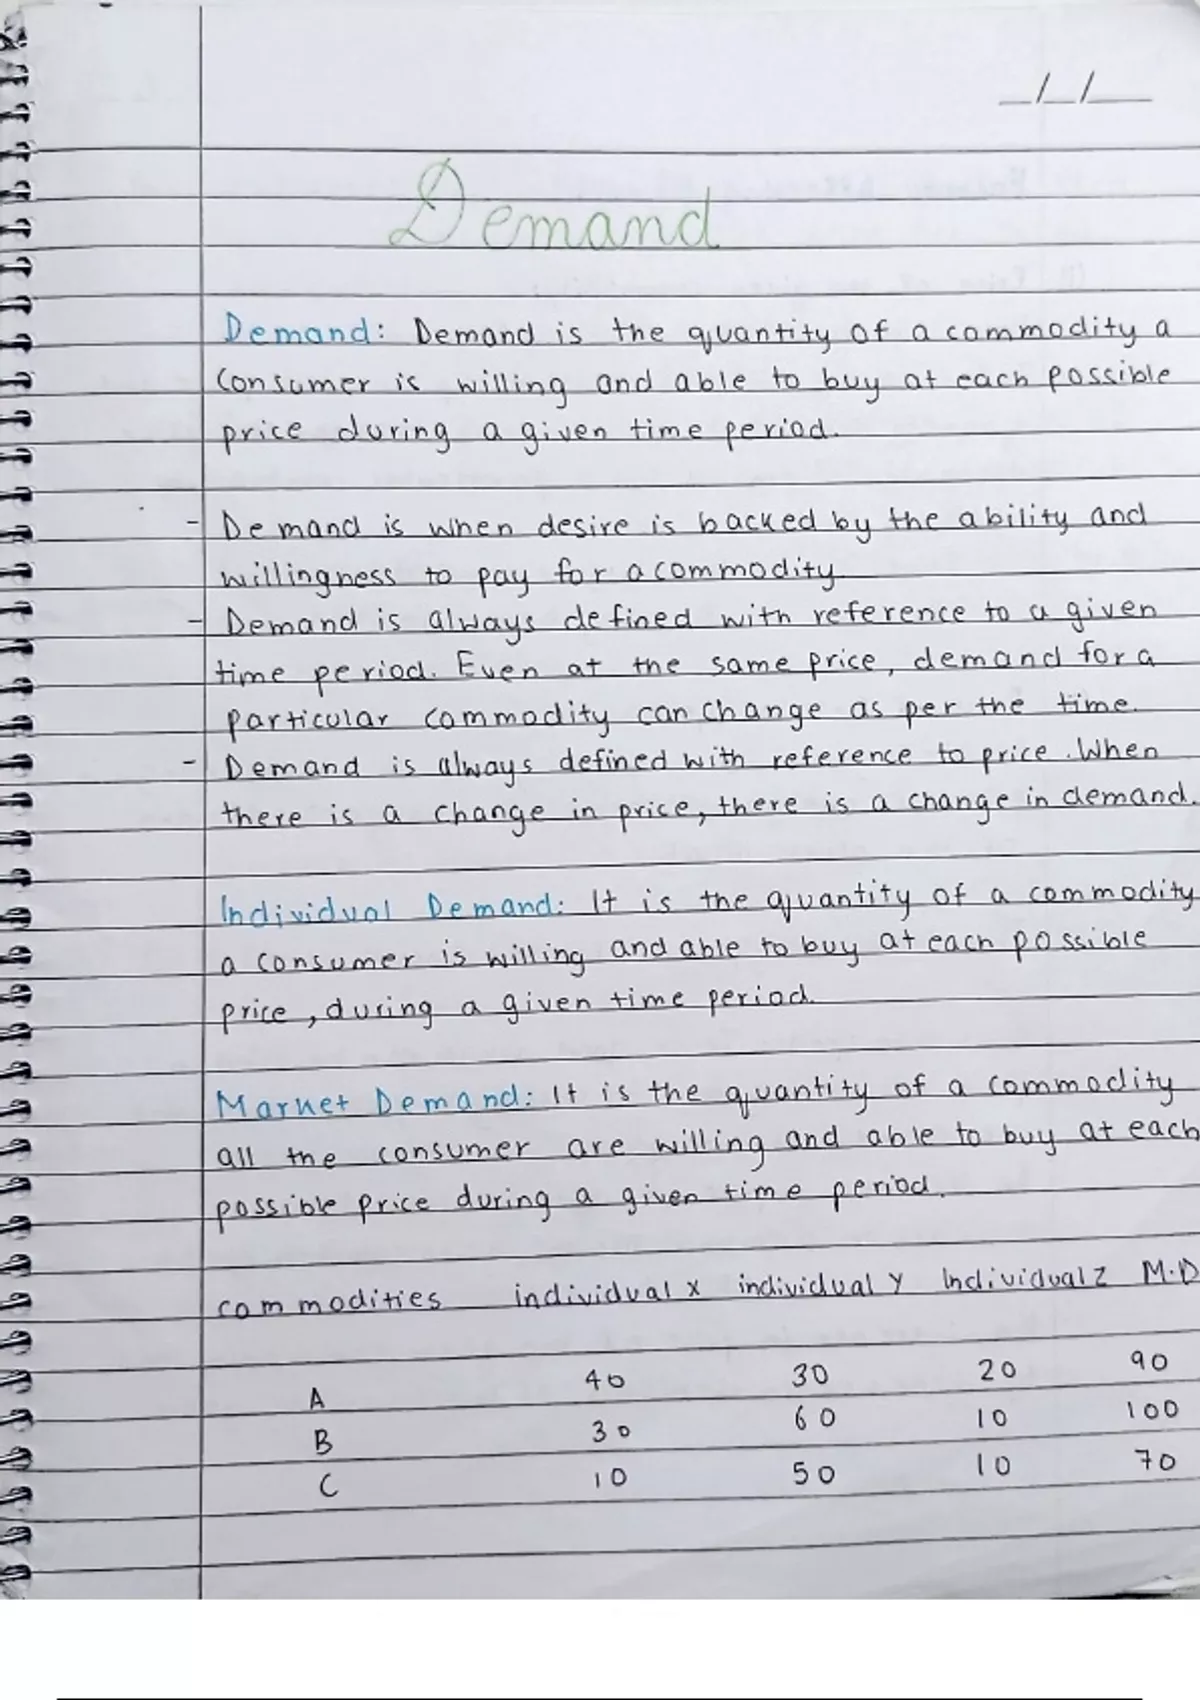 _/_/__
Demand
Demand: Demand is the quantity of a commodity a
consumer is willing and able to buy at each possible
price during a given time period.
- Demand is when desire is backed by the ability and
willingness to pay for a commodity
- Demand is always defined with reference to a given
time period. Even at the same price, demand for a
particular commodity can change as per the time.
- Demand is always defined with reference to price. When
there is a change in price, there is a change in demand.
Individual Demand: It is the quantity of a commodity
a consumer is willing and able to buy at each possible
price, during a given time period.
Market Demand: It is the quantity of a commodity
all the consumer are willing and able to buy at each
possible price during a given time period.
commodities individual X individual Y Individual Z M.D
A 40 30 20 90
B 30 60 10 100
C 10 50 10 70